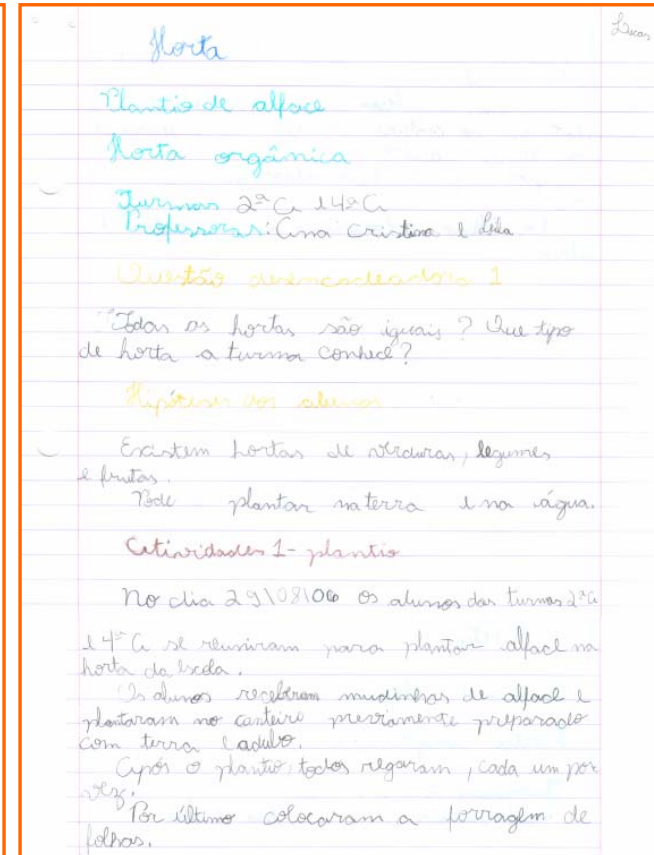 Lucas
Horta
Plantio de alface
Horta orgânica
Turmas 2ª A e 4ª A
Professoras: Ana Cristina e Leila
Questão desencadeadora 1
Todas as hortas são iguais? Que tipo
de horta a turma conhece?
Hipóteses dos alunos
Existem hortas de verduras, legumes
e frutas.
Pode plantar na terra e na água.
Atividades 1 - plantio
No dia 29\08\06 os alunos das turmas 2ª A
e 4ª A se reuniram para plantar alface na
horta da escola.
Os alunos receberam mudinhas de alface e
plantaram no canteiro previamente preparado
com terra e adubo.
Após o plantio, todos regaram, cada um por
vez.
Por último colocaram a forragem de
folhas.